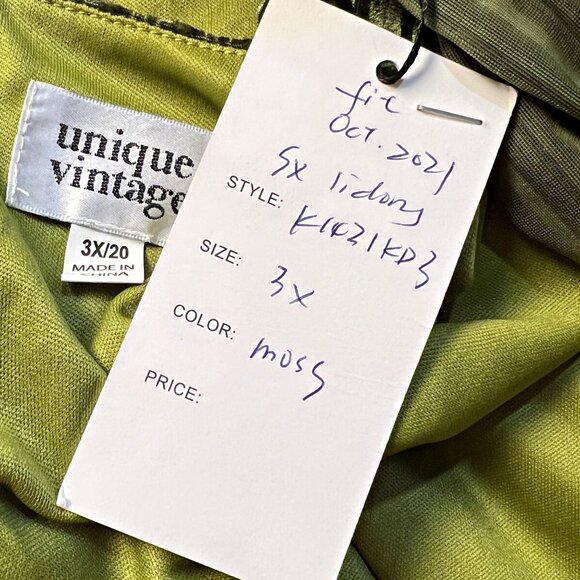 unique
vintage
3X/20
MADE IN
CHINA
fit
Oct. 2021
STYLE:
SIZE: 3X
COLOR: moss
PRICE: